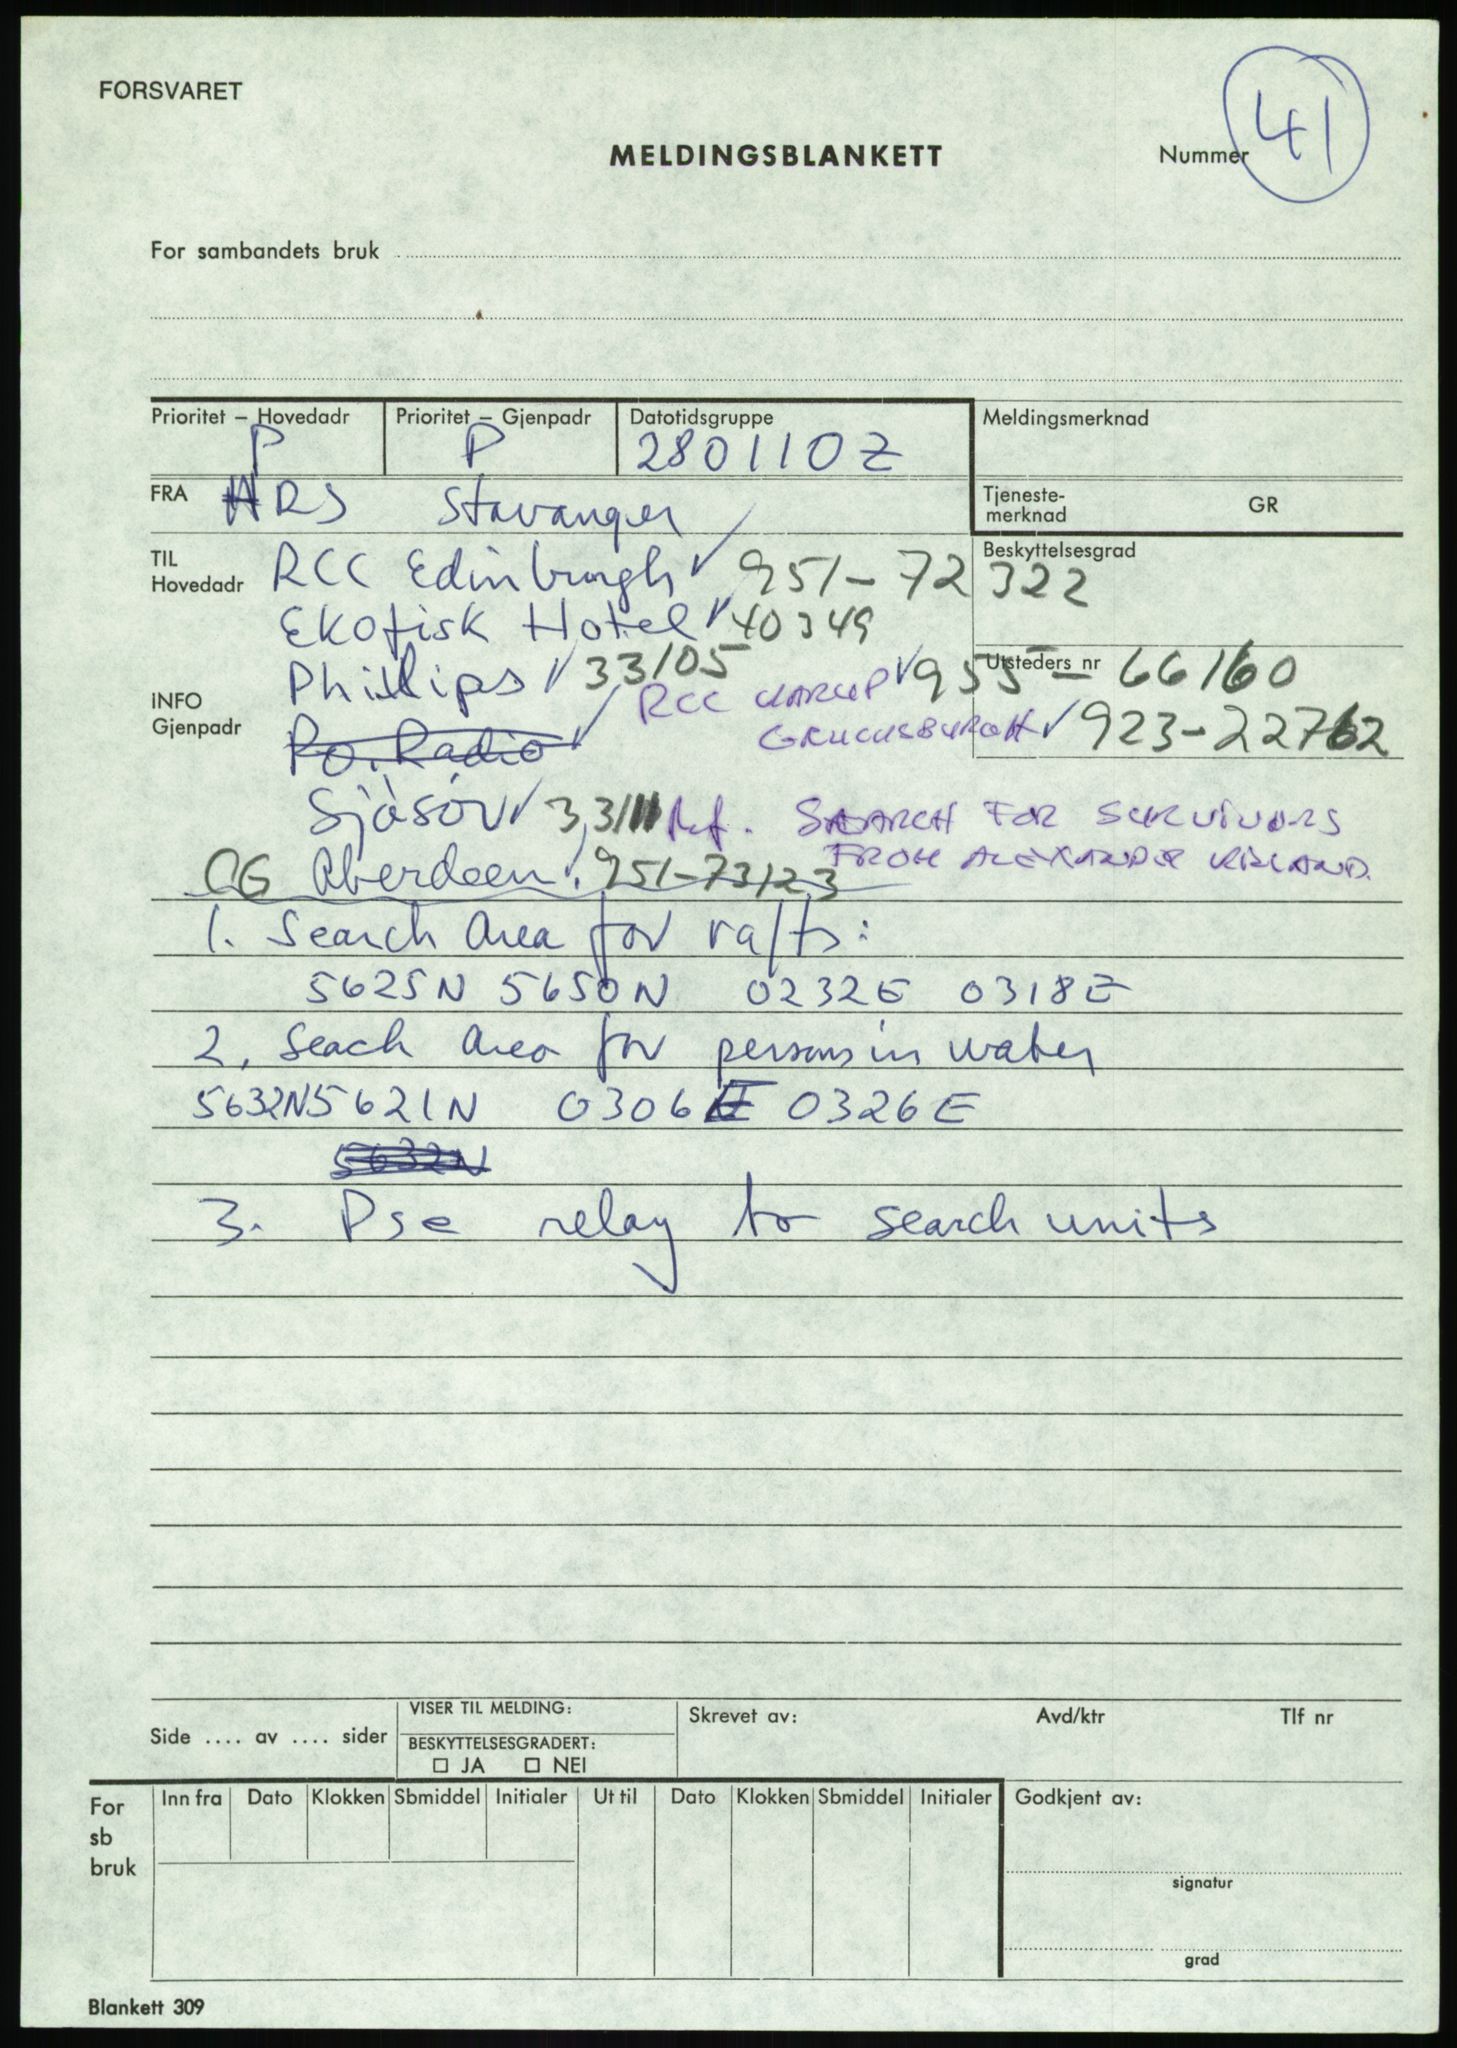 FORSVARET
MELDINGSBLANKETT
Nummer 41
For sambandets bruk
Prioritet – Hovedadr P
Prioritet – Gjenpadr P
Datotidsgruppe 280110Z
Meldingsmerknad
FRA HRS Stavanger
Tjeneste-
merknad
GR
TIL
Hovedadr
Beskyttelsesgrad
RCC Edinburgh ✓ 951-72322
Ekofisk Hotel ✓ 40349
Phillips ✓ 33105
Utsteders nr
INFO
Gjenpadr
RCC KARUP ✓ 955-66160
Ro. Radio ✓
GRUCKSBURGH ✓ 923-22762
Sjøsov ✓ 33111
Ref. SEARCH FOR SURVIVORS
FROM ALEXANDER KIELAND.
CG Aberdeen. 951-73123
1. Search Area for rafts:
5625N 5650N 0232E 0318E
2. Seach Area for persons in water
5632N 5621N 0306E 0326E
5632N
3. Pse relay to search units
Side .... av .... sider
VISER TIL MELDING:
BESKYTTELSESGRADERT:
☐ JA ☐ NEI
Skrevet av:
Avd/ktr
Tlf nr
For
sb
bruk
Inn fra Dato Klokken Sbmiddel Initialer Ut til Dato Klokken Sbmiddel Initialer
Godkjent av:
signatur
grad
Blankett 309